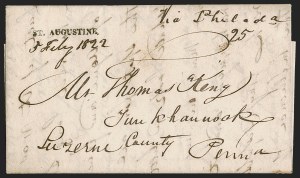 ST. AUGUSTINE
5 July 1822
Via Philada
25
Mr Thomas Keny
Tunkhannock
Luzerne County
Penna